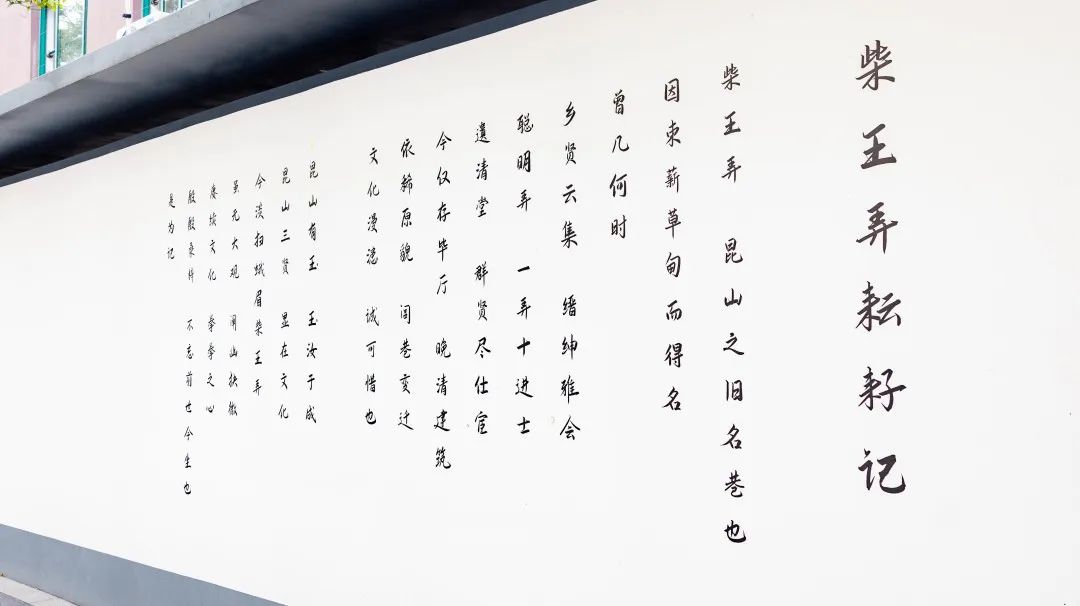 柴王弄耘耔记
柴王弄 昆山之旧名巷也
因束薪草甸而得名
曾几何时
乡贤云集 缙绅雅会
聪明弄 一弄十进士
遗清堂 群贤尽仕宦
今仅存毕厅 晚清建筑
依稀原貌 闾巷变迁
文化漫漶 诚可惜也
昆山有玉 玉汝于成
昆山三贤 显在文化
今淡扫蛾眉柴王弄
虽无大观 阐幽抉微
赓续文化 拳拳之心
殷殷桑梓 不忘前世今生也
是为记